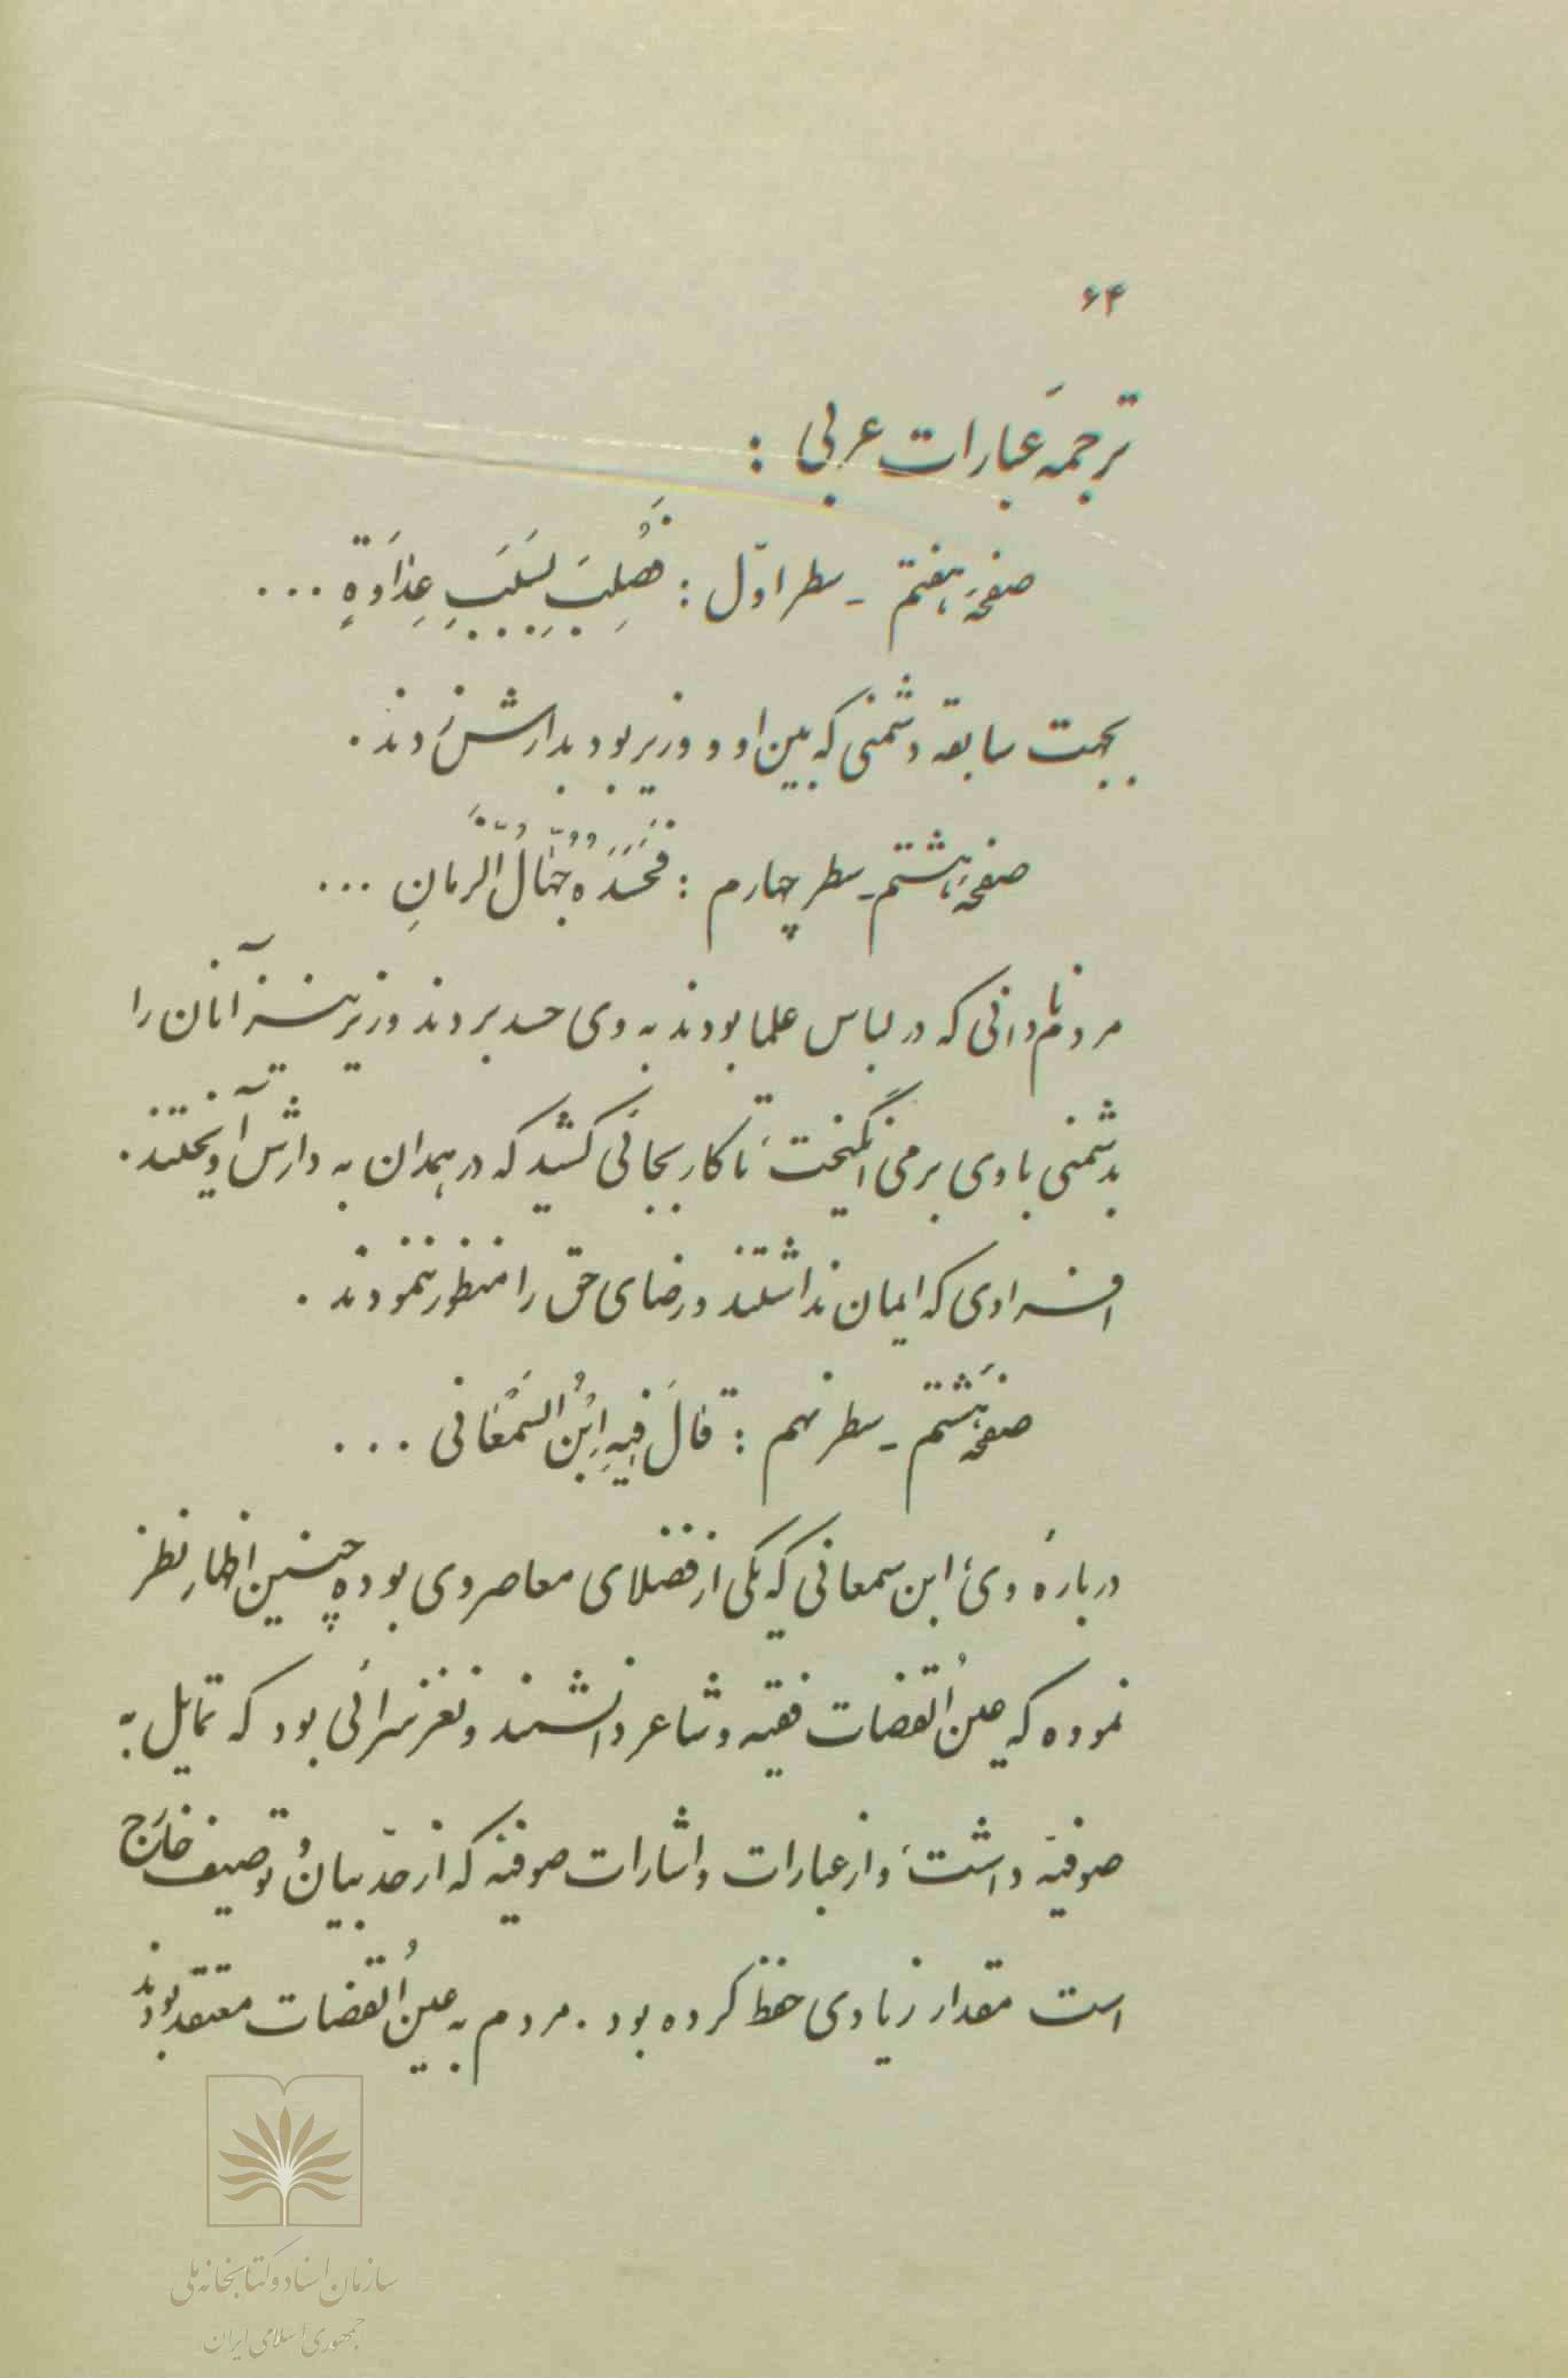 ۶۴
ترجمهَ عبارات عربی :
صفحهَ هفتم - سطر اوّل : فَصُلِبَ بِسَبَبِ عِدٰاَوَةٍ ...
بجهت سابقه دشمنی که بین او و وزیر بود بدارش زدند .
صفحهَ هشتم - سطر چهارم : فَحَسَدَهُ جُهّٰالُ الزَّمانِ ...
مردم نادانی که در لباس علما بودند به وی حسد بردند وزیر نیز آنان را
بدشمنی با وی برمی انگیخت ، تا کار بجائی کشید که در همدان به دارش آویختند .
افرادی که ایمان نداشتند و رضای حق را منظور ننمودند .
صفحهَ هشتم - سطر نهم : قالَ فیهِ اِبْنُ السَمْعٰانی ...
دربارهٔ وی ، ابن سمعانی که یکی از فضلای معاصر وی بوده چنین اظهار نظر
نموده که عینُ القضات فقیه و شاعر دانشمند و نغز سرائی بود که تمایل به
صوفیّه داشت ، و از عبارات و اشارات صوفیّه که از حدّ بیان و توصیف خارج
است مقدار زیادی حفظ کرده بود . مردم به عینُ القضات معتقد بودند
سازمان اسناد و کتابخانه ملی
جمهوری اسلامی ایران